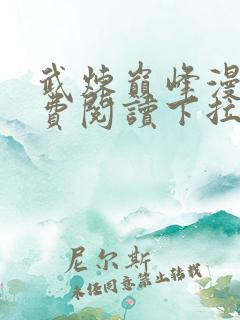 武炼巅峰漫
费阅读下拉
尼尔斯
未经同意禁止转载